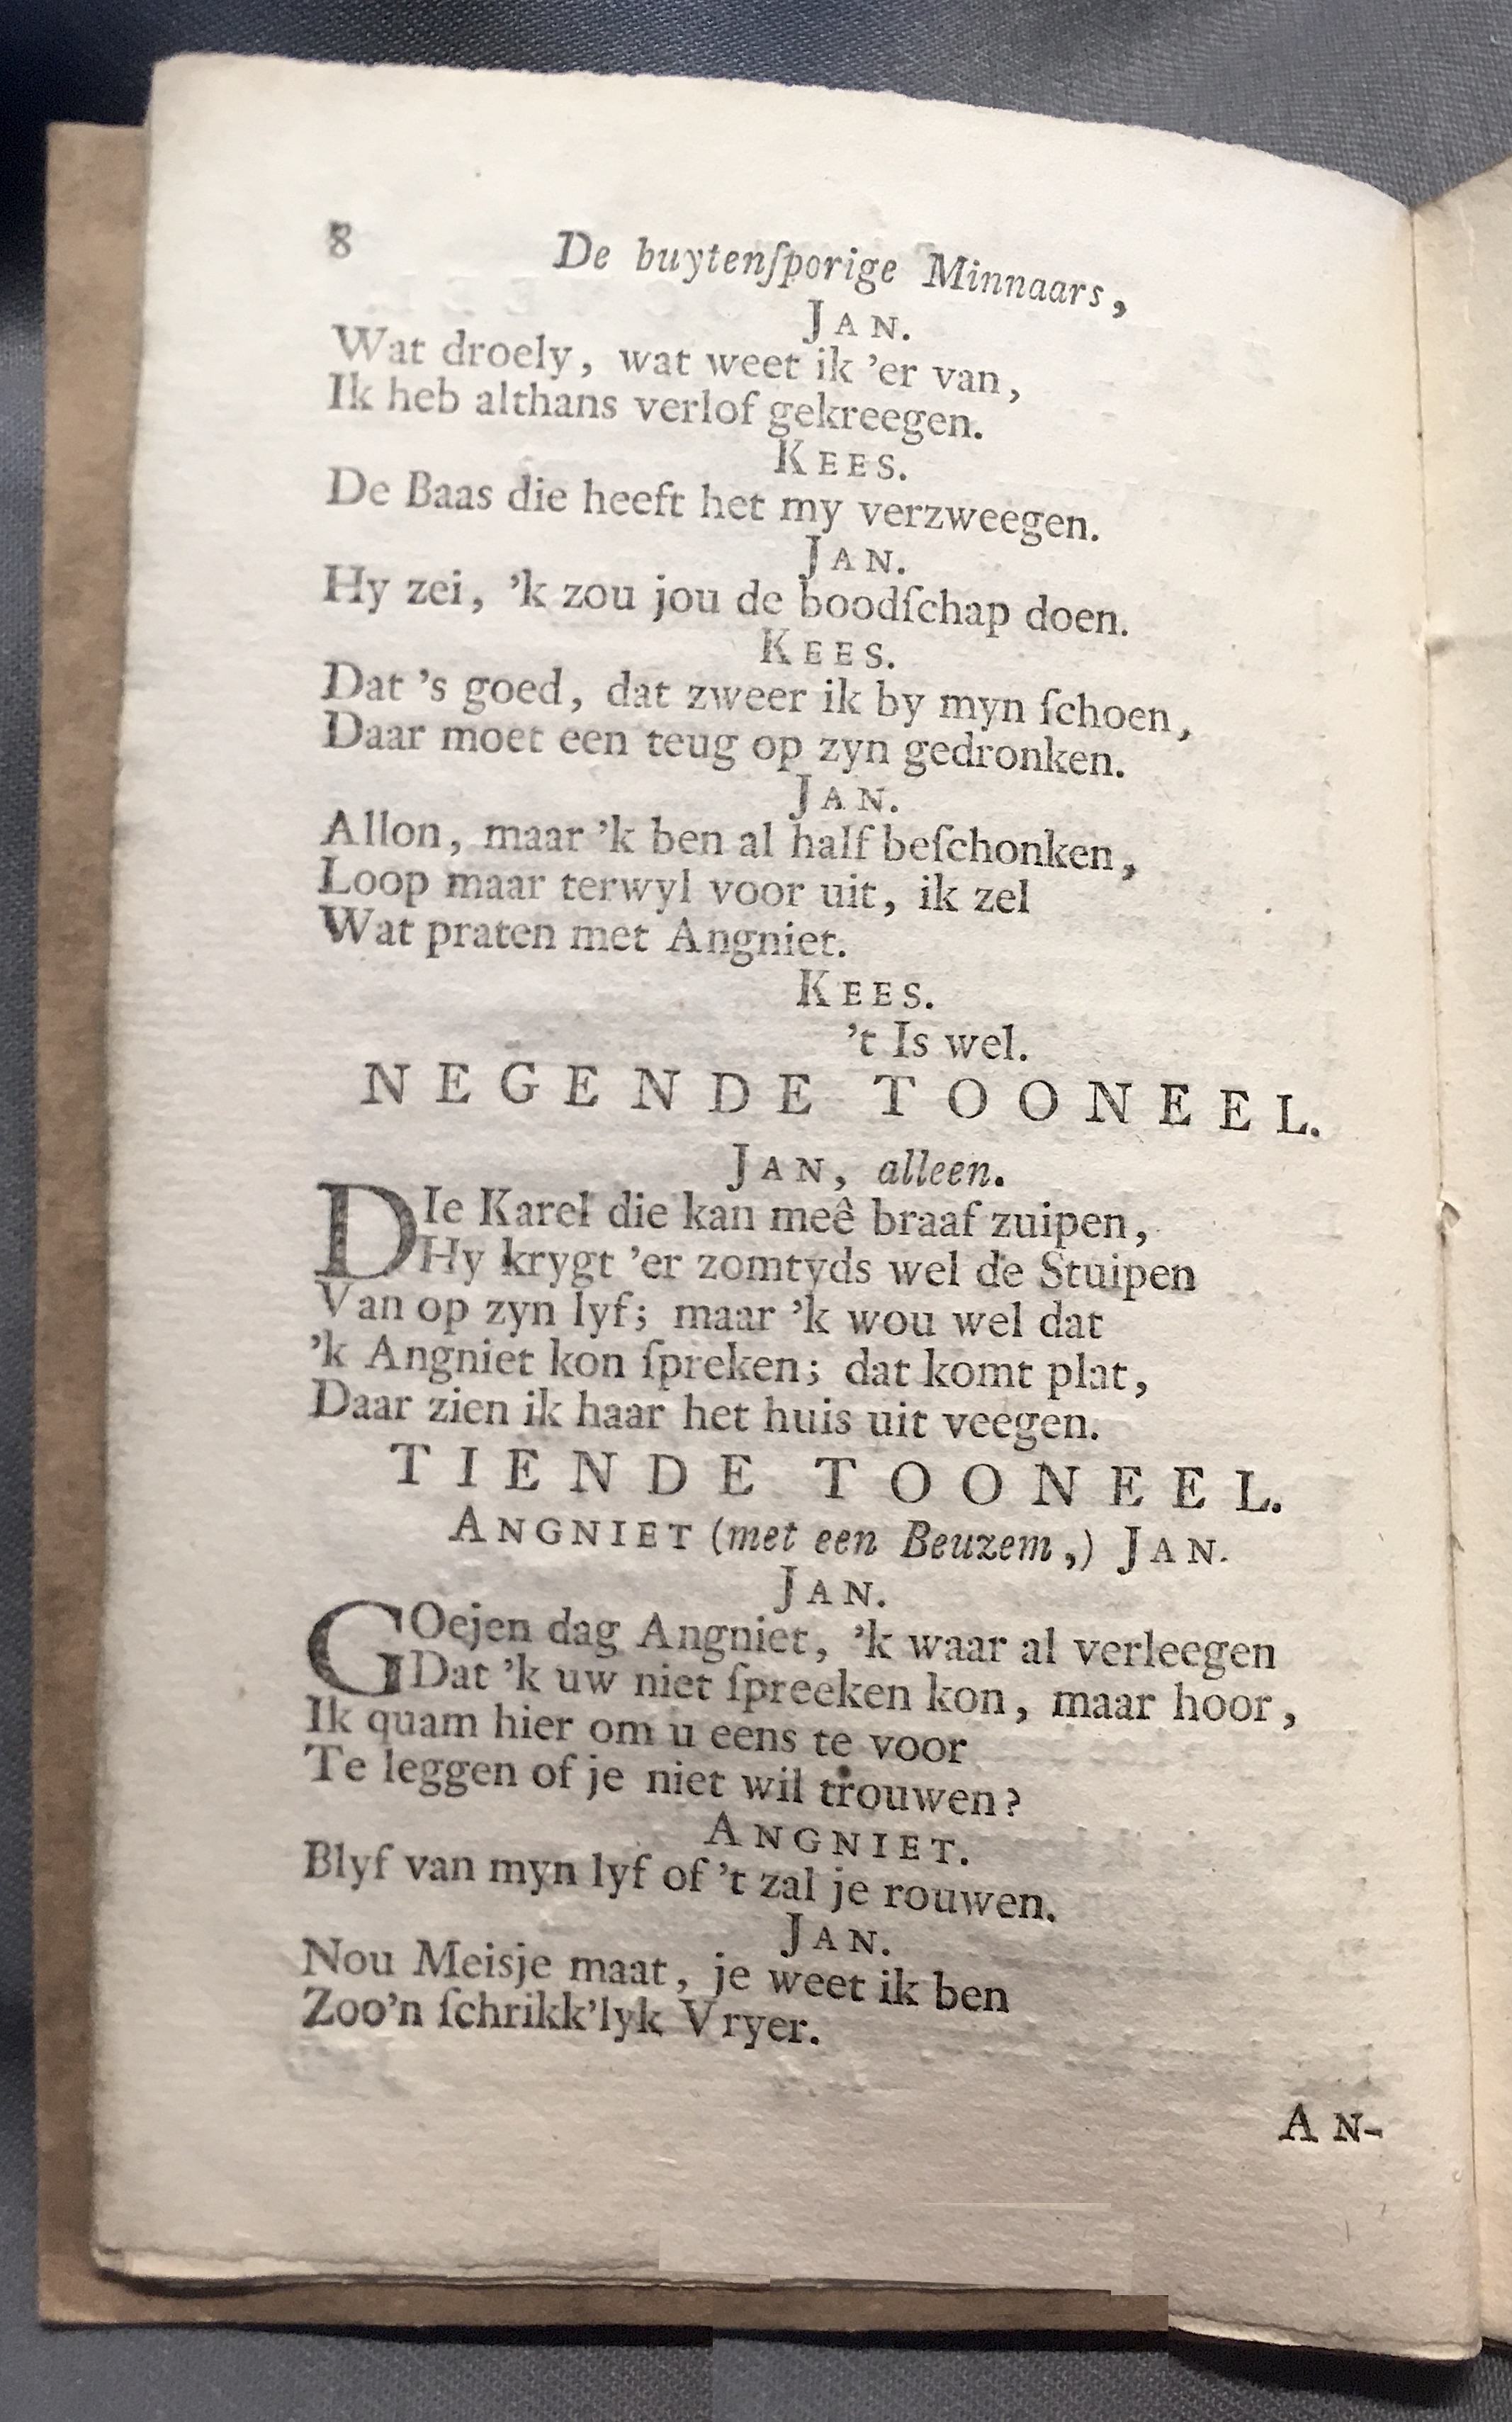 8 De buytenſporige Minnaars,
JAN.
Wat droely, wat weet ik ’er van,
Ik heb althans verlof gekreegen.
KEES.
De Baas die heeft het my verzweegen.
JAN.
Hy zei, ’k zou jou de boodſchap doen.
KEES.
Dat ’s goed, dat zweer ik by myn ſchoen,
Daar moet een teug op zyn gedronken.
JAN.
Allon, maar ’k ben al half beſchonken,
Loop maar terwyl voor uit, ik zel
Wat praten met Angniet.
KEES.
’t Is wel.
NEGENDE TOONEEL.
JAN, alleen.
DIe Karel die kan meê braaf zuipen,
Hy krygt ’er zomtyds wel de Stuipen
Van op zyn lyf; maar ’k wou wel dat
’k Angniet kon ſpreken; dat komt plat,
Daar zien ik haar het huis uit veegen.
TIENDE TOONEEL.
ANGNIET (met een Beuzem,) JAN.
JAN.
GOejen dag Angniet, ’k waar al verleegen
Dat ’k uw niet ſpreeken kon, maar hoor,
Ik quam hier om u eens te voor
Te leggen of je niet wil trouwen?
ANGNIET.
Blyf van myn lyf of ’t zal je rouwen.
JAN.
Nou Meisje maat, je weet ik ben
Zoo’n ſchrikk’lyk Vryer.
AN-